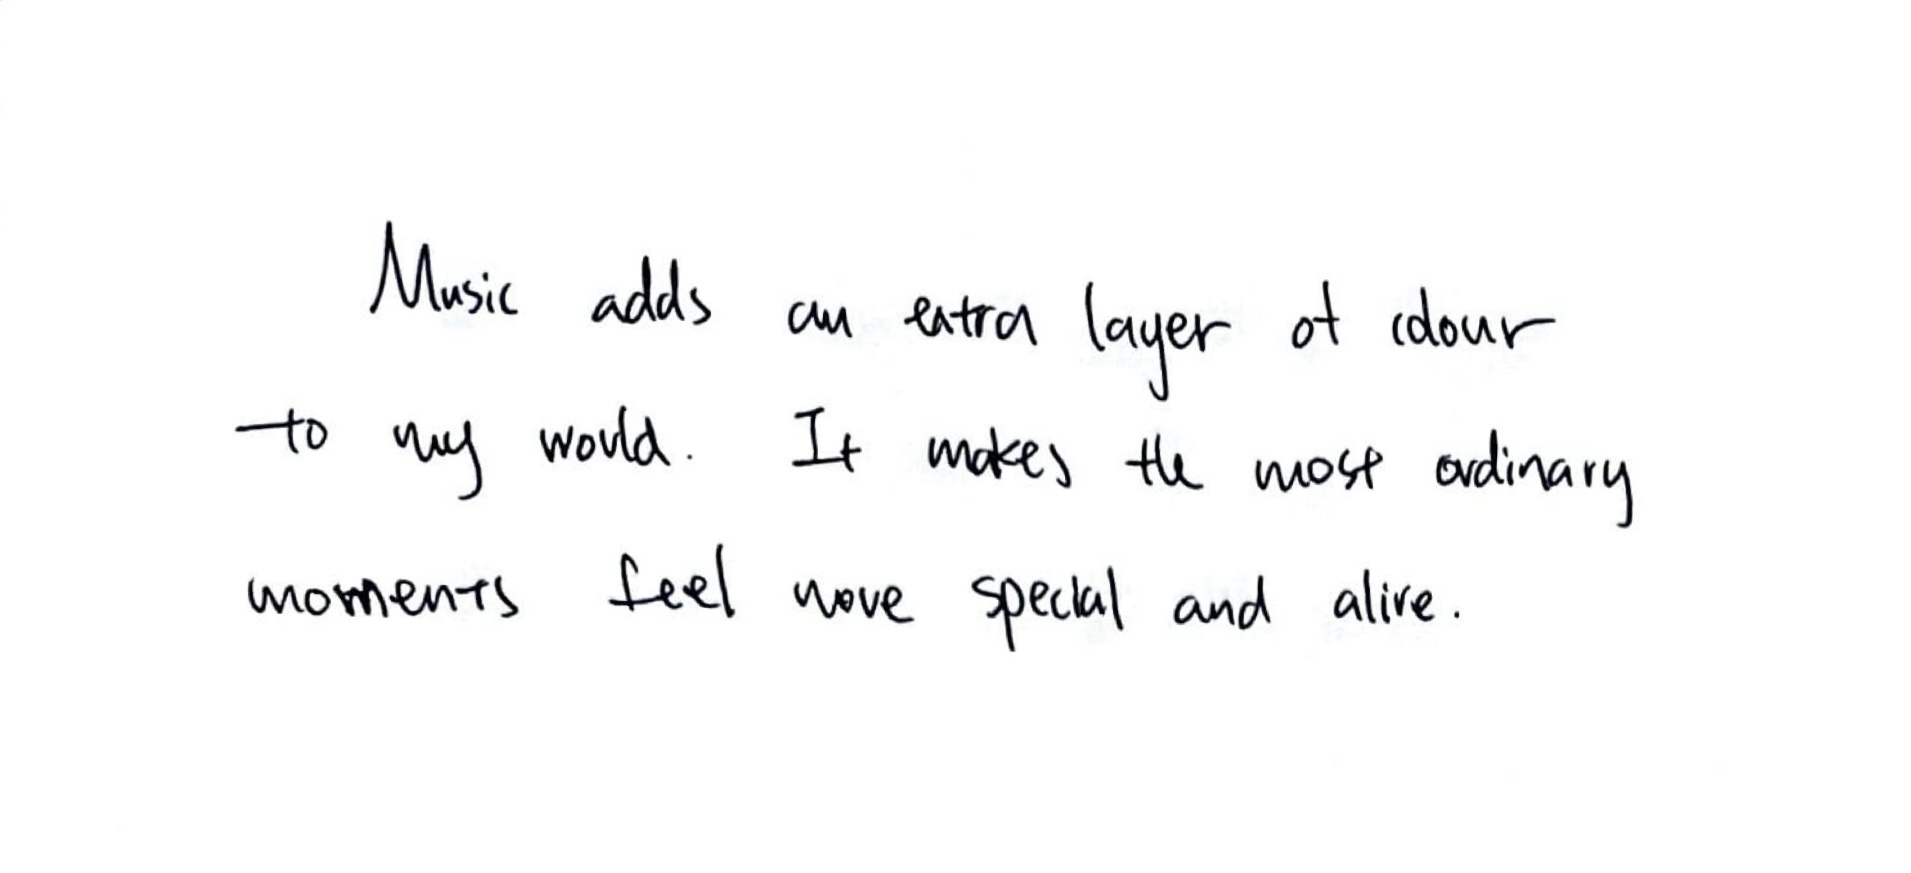 Music adds an extra layer of colour
to my world. It makes the most ordinary
moments feel more special and alive.